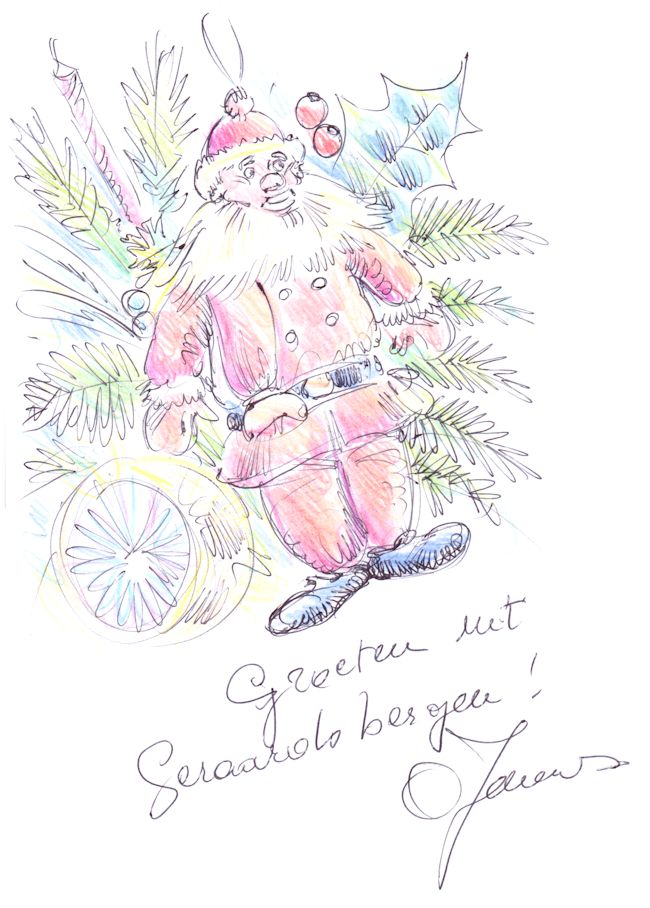 Groeten uit
Geraardsbergen!